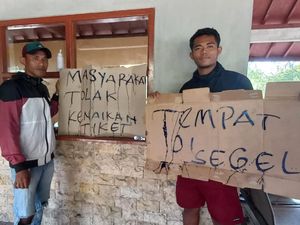 MASYARAKAT
TOLAK
KENAIKAN
TIKET
TEMPAT
DISEGEL